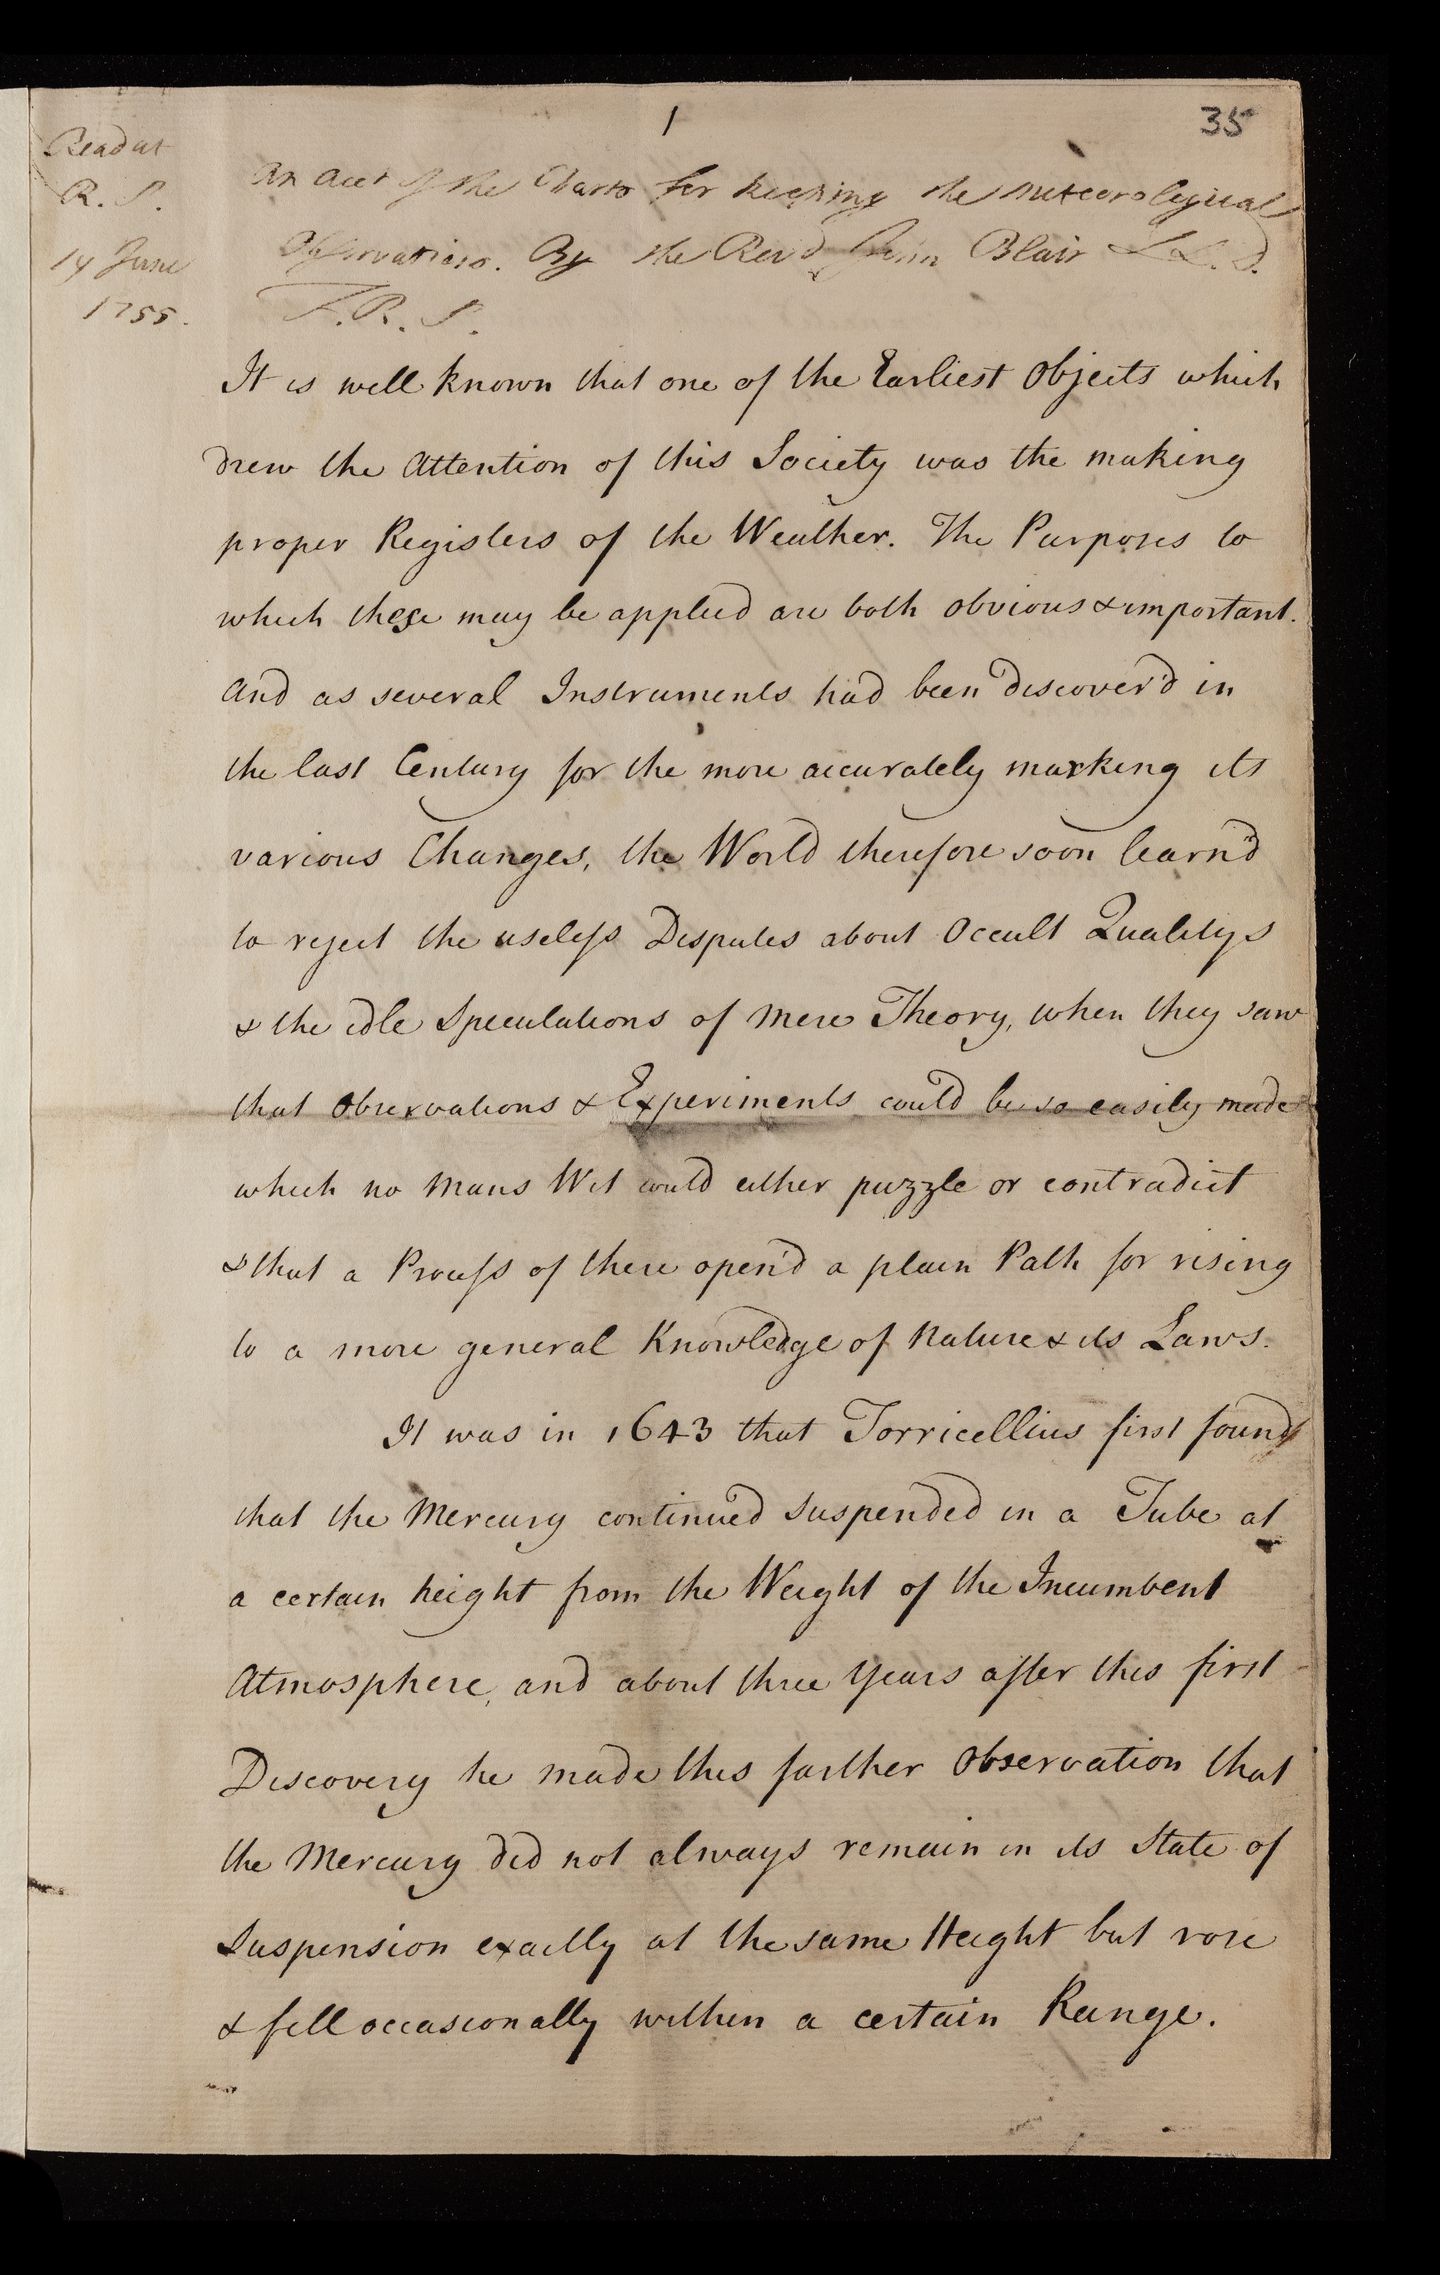 1
35
Read at
R. S.
19 June
1755.
An Acct of the Charts for keeping the Meteorological
Observations. By the Revd John Blair L L. D.
F. R. S.
It is well known that one of the Earliest Objects which
drew the Attention of this Society was the making
proper Registers of the Weather. The Purposes to
which these may be applied are both obvious & important.
And as several Instruments had been discover'd in
the last Century for the more accurately marking its
various Changes, the World therefore soon learn'd
to reject the useless Disputes about Occult Qualitys
& the idle Speculations of mere Theory, when they saw
that Observations & Experiments could be so easily made
which no Mans Wit could either puzzle or contradict
& that a Process of these open'd a plain Path for rising
to a more general Knowledge of Nature & its Laws.
It was in 1643 that Torricellius first found
that the Mercury continued suspended in a Tube at
a certain height from the Weight of the Incumbent
Atmosphere, and about three Years after this first
Discovery he made this farther Observation that
the Mercury did not always remain in its State of
Suspension exactly at the same Height but rose
& fell occasionally within a certain Range.